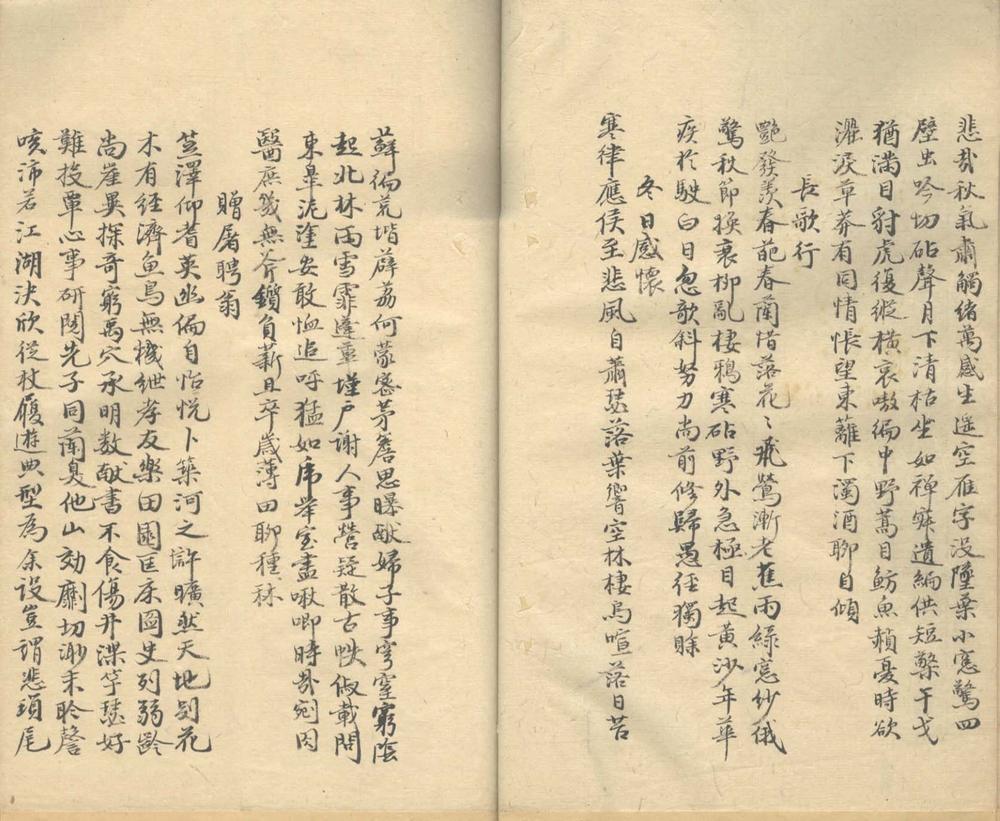 悲哉秋氣肅觸緒萬感生遥空雁字没墮葉小窓驚四
壁虫吟切砧聲月下清枯坐如禅寂遺編供短檠干戈
猶满目豺虎復縱横哀嗷徧中野蒿目魴魚赬憂時欲
濺淚草莽有同情悵望東蘺下濁酒聊自傾
長歌行
艷發羨春葩春蘭惜落花〻飛鶯漸老蕉雨緑窓紗俄
驚秋節換衰柳亂棲鴉寒砧野外急極目起黄沙年華
疾於駛白日忽欹斜努力尚前修歸愚徑獨賒
冬日感懷
寒律應侯至悲風自蕭瑟落葉響空林棲烏喧落日苔
蘚徧荒堦薜荔何蒙密茅簷思曝献婦子事穹窒窮陰
起北林雨雪霏蓬蓽墐户謝人事營疑散古帙俶載問
東皋泥塗安敢恤追呼猛如虎举室盡啾唧時哉宛因
醫庶幾無斧鑕負薪且卒歲薄田聊種秫
贈屠聘翁
笠澤仰耆英邈徧自怡悦卜築河之滸曠然天地别花
木有經濟魚鳥無機紲孝友樂田園匡床圖史列弱齡
尚崖異探奇窮禹穴承明数献書不食傷井渫竽瑟好
難投單心事研閲先子同蘭臭他山効劘切渺末聆謦
咳沛若江湖决欣從杖履遊典型為余設豈謂悲瑣尾